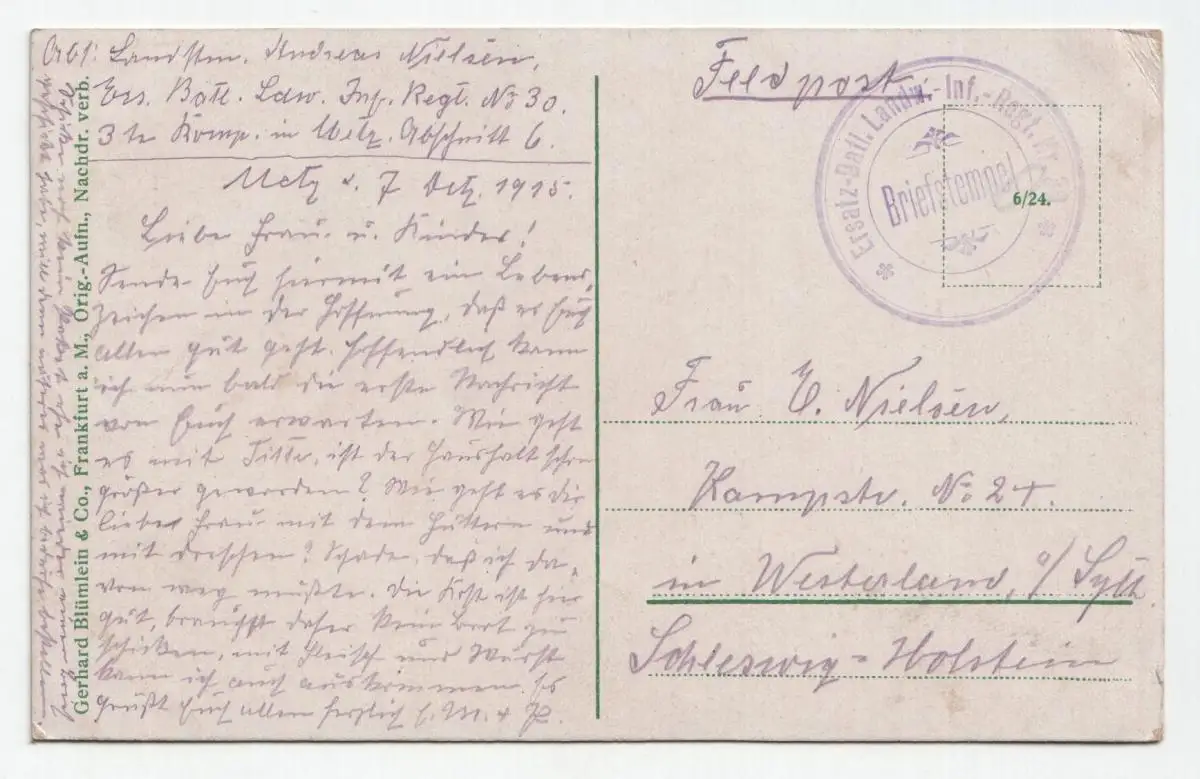 Abs: Landstm. Andreas Nielsen,
Ers. Batl. Ldw. Inf. Regt. No 30.
3te Komp. in Metz. Abschnitt 6.
Metz d. 7 Okt. 1915.
Liebe Frau u. Kinder!
Sende Euch hiermit ein Lebens,
zeichen in der Hoffnung, daß es Euch
allen gut geht. Hoffendlich kann
ich nun bald die erste Nachricht
von Euch erwarten. Wie geht
es mit Titte, ist der Haushalt schon
größer geworden? Wie geht es dir
liebe Frau mit dem Füttern und
mit dreschen? Schade, daß ich da,
von weg mußte. Die Kost ist hier
gut, brauchst daher kein Brot zu
schicken, mit Fleisch und Wurst
kann ich auch auskommen. Es
grüßt Euch allen herzlich E. M. & P.
Gerhard Blümlein & Co., Frankfurt a. M., Orig.-Aufn., Nachdr. verb.
Feldpost
Ersatz-Batl. Landw.-Inf.-Regt. Nr. 30
Briefstempel
6/24.
Frau E. Nielsen,
Kampstr. No 24.
in Westerland, a/ Sylt
Schleswig-Holstein